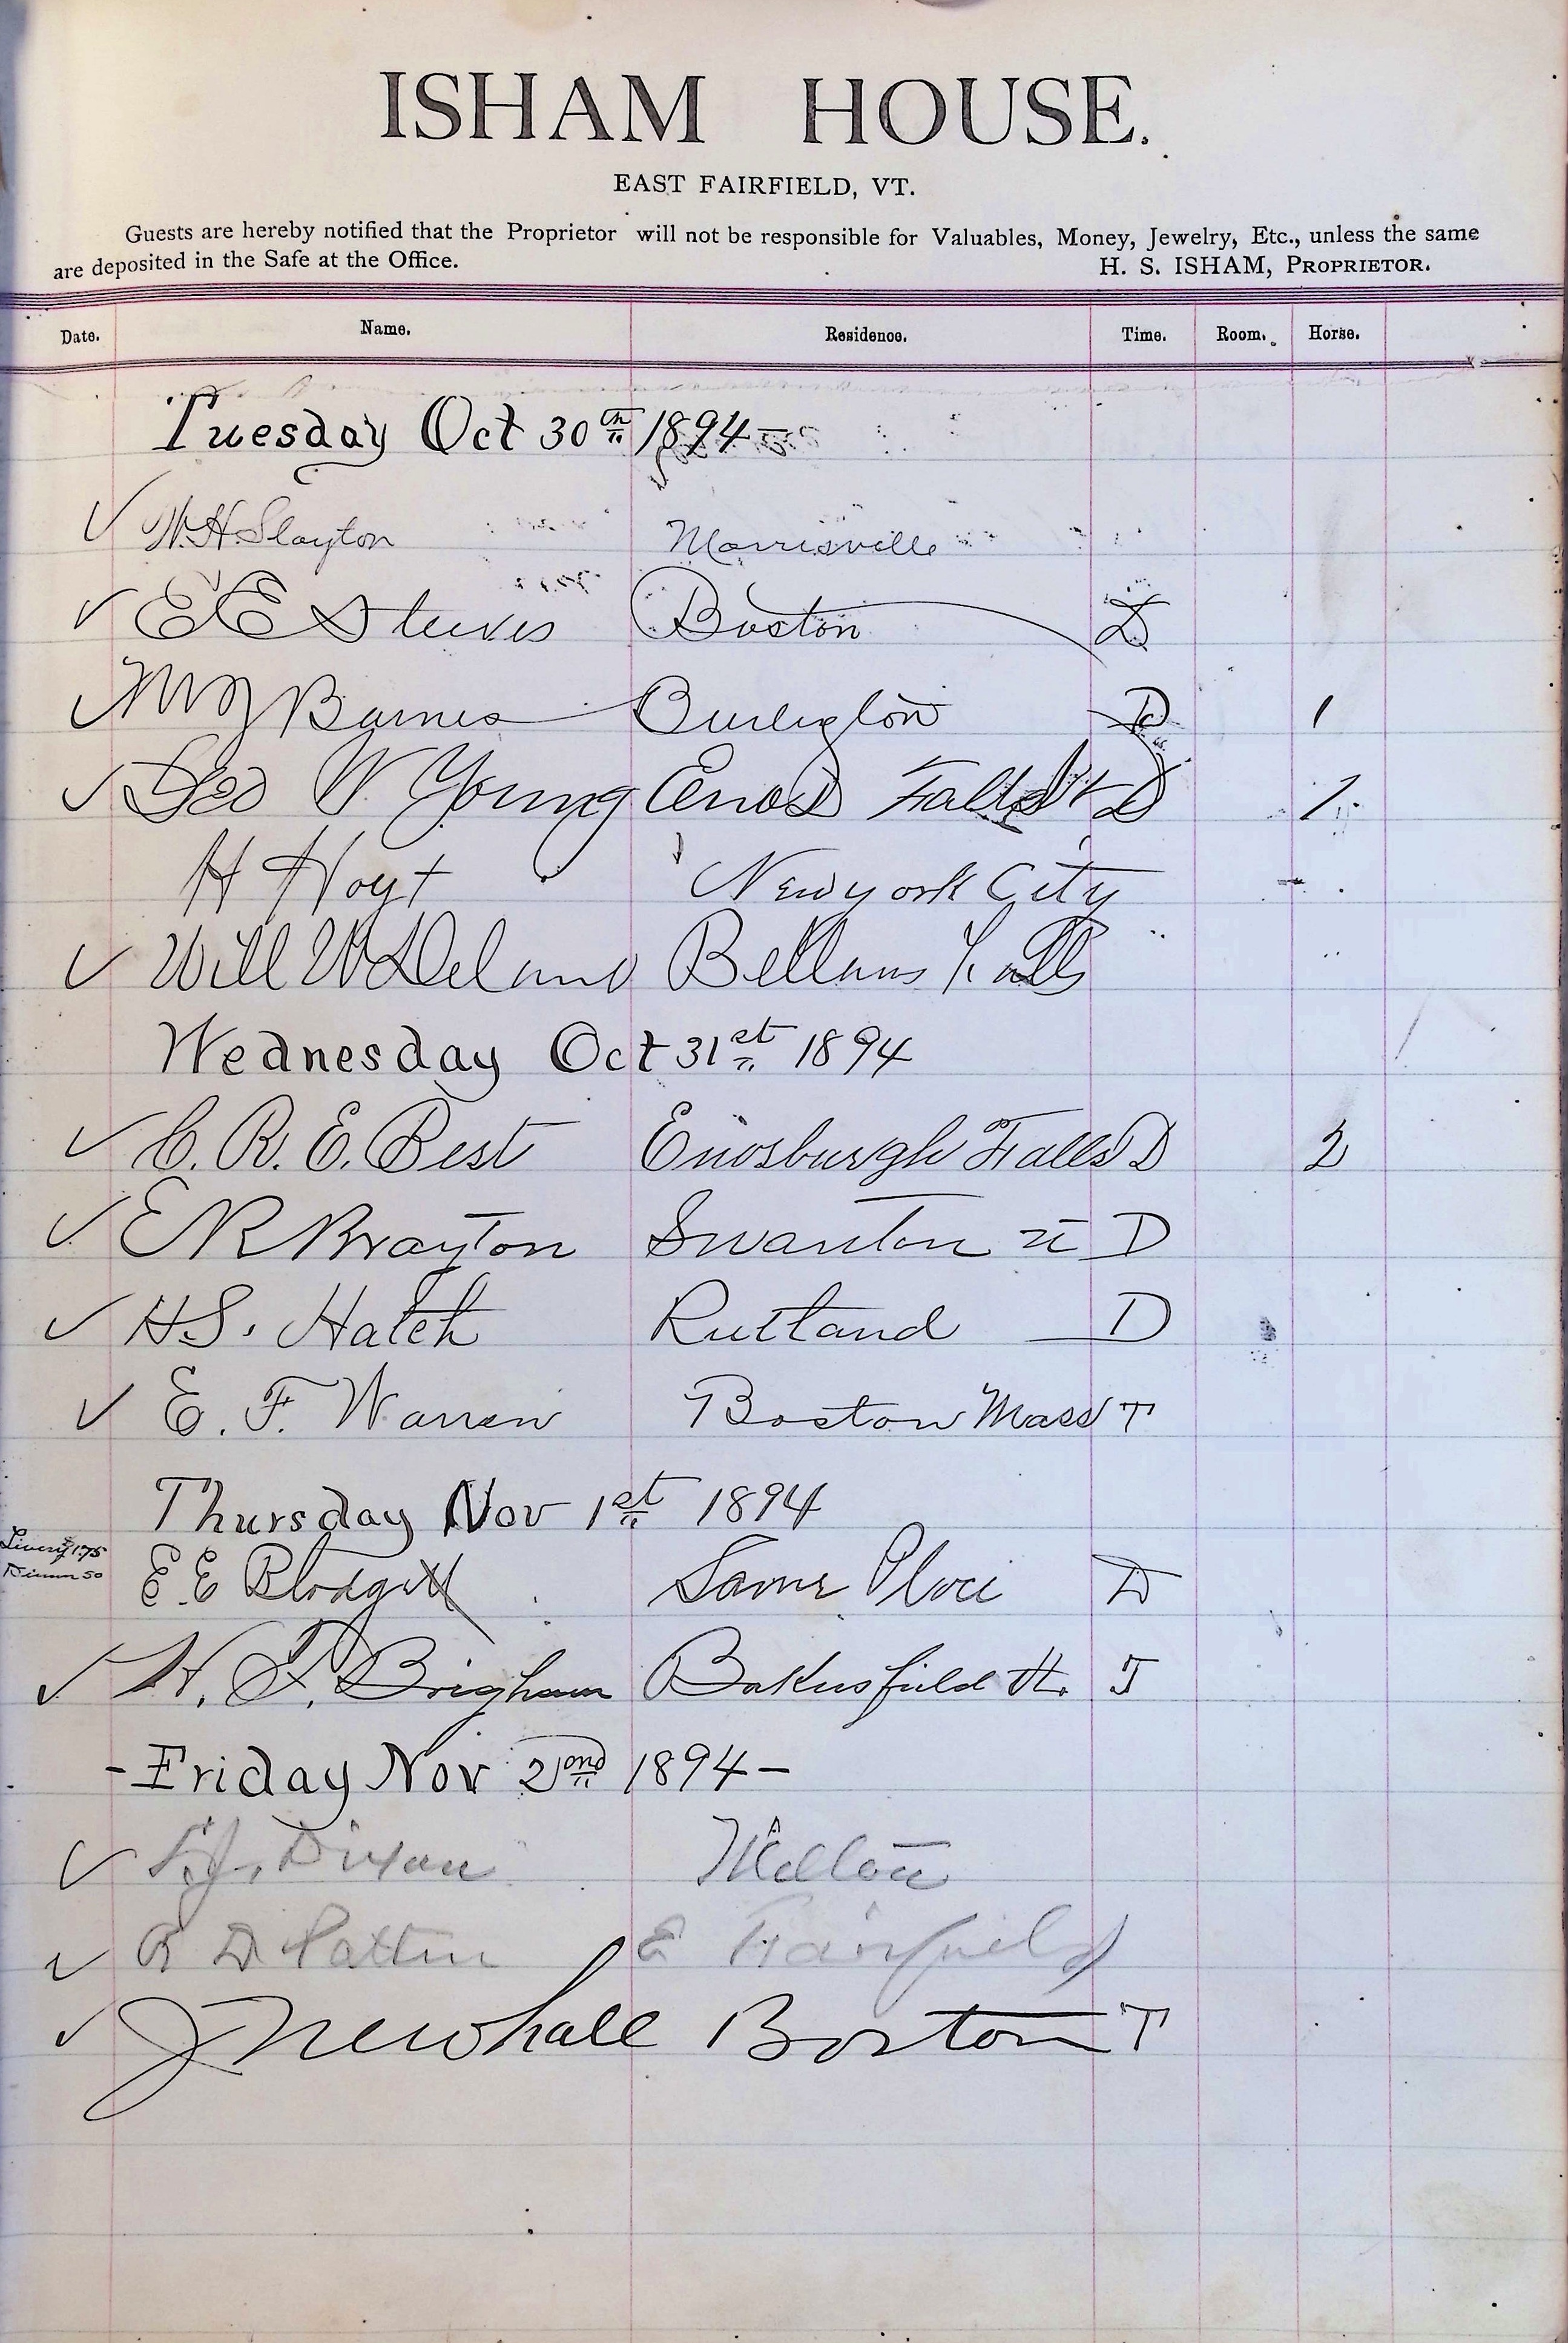 ISHAM HOUSE.
EAST FAIRFIELD, VT.
Guests are hereby notified that the Proprietor will not be responsible for Valuables, Money, Jewelry, Etc., unless the same
are deposited in the Safe at the Office. H. S. ISHAM, PROPRIETOR.
Date. Name. Residence. Time. Room. Horse.
Tuesday Oct 30th 1894-
✓ W.H. Slayton Morrisville
✓ E E Steeves Boston D
✓ Barnes Burlington D 1
✓ Geo W. Young Enos Falls Vt D 1
H Hoyt New york City
✓ Will W Deland Bellows Falls
Wednesday Oct 31st 1894
✓ C. R. E. Best Enosburgh Falls D 2
✓ E R Brayton Swanton Vt D
✓ H S. Hatch Rutland D
✓ E. F. Warren Boston Mass T
Thursday Nov 1st 1894
Livery 1.75
Dinner 50
E. E Blodgett Same Place D
✓ H. F. Brigham Bakersfield Vt. T
- Friday Nov 2nd 1894 -
✓ Dixon Milton
✓ R D Patten E Fairfield
✓ J Newhall Boston T